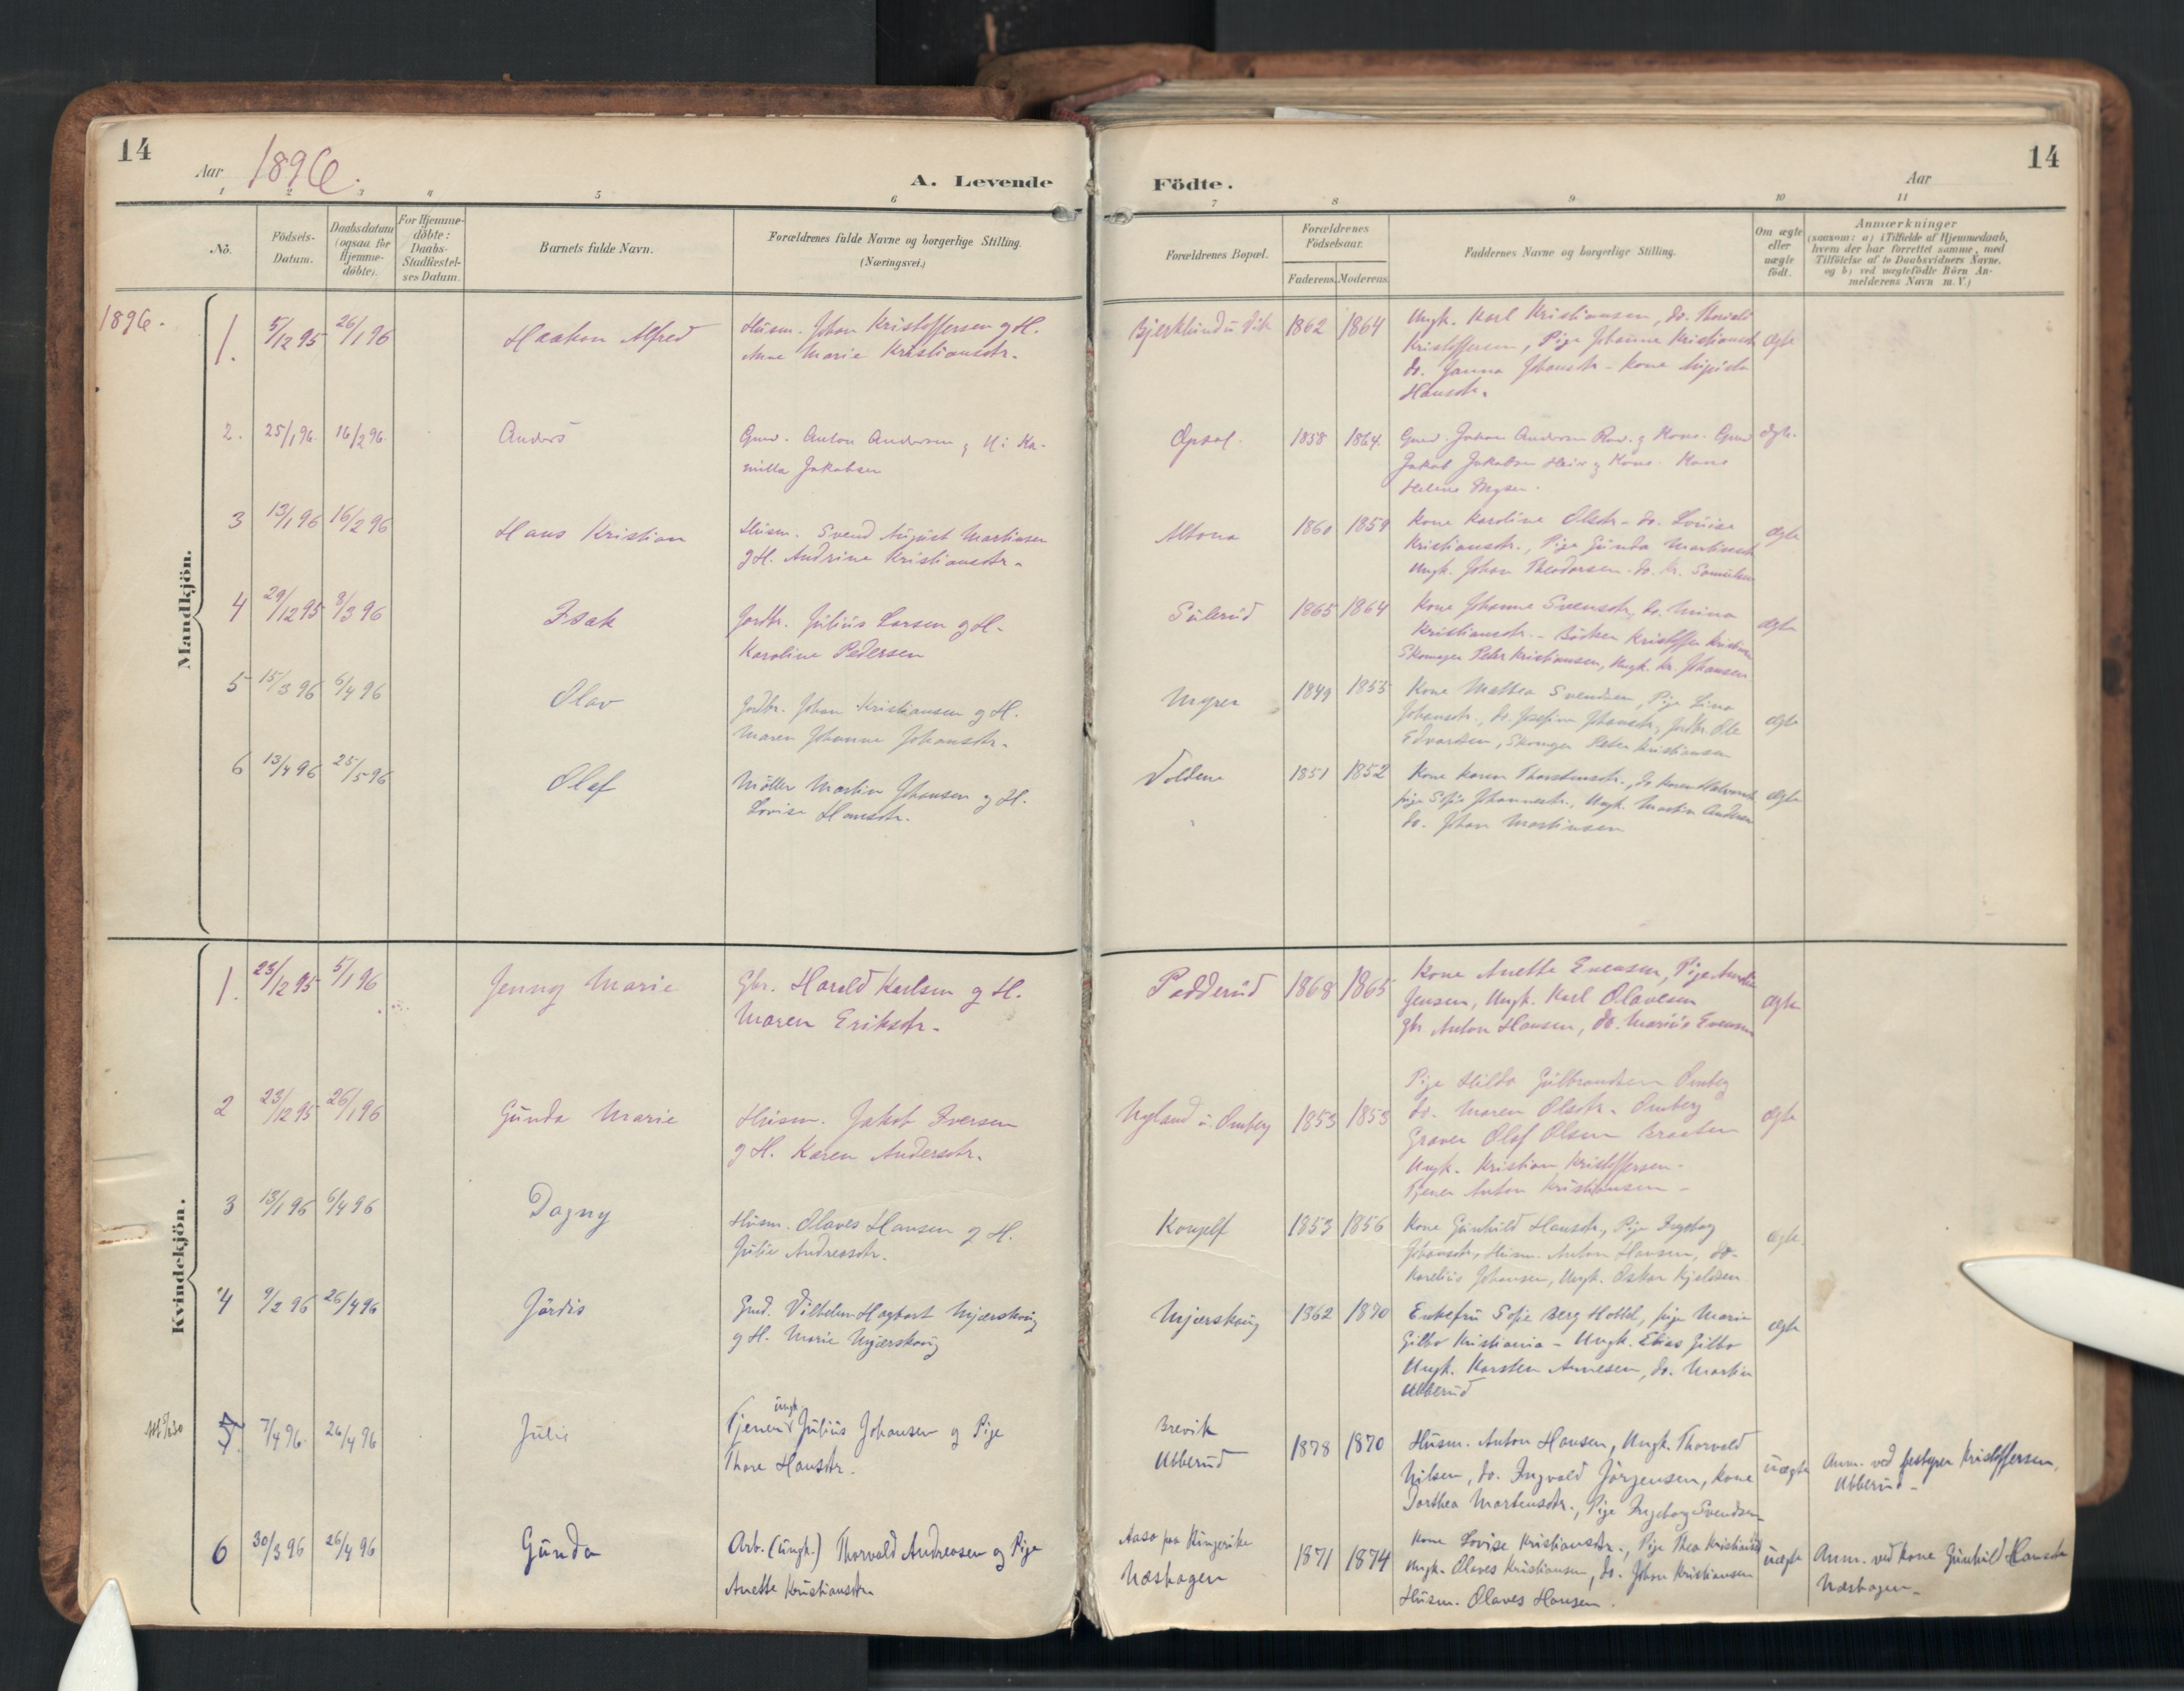 14
Aar 1896.
A. Levende
Födte.
Aar
14
1 2 3 4 5 6 7 8 9 10 11
No.
Födsels-
Datum.
Daabsdatum
(ogsaa for
Hjemme-
döbte).
For Hjemme-
döbte:
Daabs-
Stadfæstel-
ses Datum.
Barnets fulde Navn.
Forældrenes fulde Navne og borgerlige Stilling.
(Næringsvei.)
Forældrenes Bopæl.
Forældrenes
Födselsaar.
Faderens. Moderens.
Faddernes Navne og borgerlige Stilling.
Om ægte
eller
uægte
födt.
Anmærkninger
(saasom: a) i Tilfælde af Hjemmedaab,
hvem der har forrettet samme, med
Tilföielse af to Daabsvidners Navne,
og b) ved uægtefödte Börn An-
melderens Navn m. V.)
Mandkjön.
1896.
1. 5/12 95 26/1 96 Haakon Alfred
Husm. Johan Kristoffersen og H.
Anne Marie Kristiansdtr.
1862 1864
Ungk. Karl Kristiansen, do. Thorvald
Kristoffersen, Pige Johanne Kristiansdtr
do. Janna Johansdtr - Kone Augusta
Hansdtr.
ægte
2. 25/1 96. 16/2 96. Anders
Gmd. Anton Andersen og H: Ka-
milla Jakobsen
Opsal. 1858 1864
Gmd. Johan Andersen og Kone. Gmd
Jakob Jakobsen og Kone. Kone
Helene
ægte.
3 13/1 96 16/2 96 Hans Kristian
Husm. Svend August Martinsen
og H. Andrine Kristiansdtr.
Altona 1860 1859
Kone Karoline Olsdtr - do. Lovise
Kristiansdtr., Pige Gunda Martinsdtr
Ungk. Johan Theodorsen - do. Kr. Samuelsen
ægte
4 29/12 95 8/3 96 Isak
Jordbr. Julius Larsen og H.
Karoline Pedersen
Sulerud 1865 1864
Kone Johanne Svensdtr, do. Mina
Kristiansdtr. - Bödker Kristoffer Kristiansen
Skomager Peter Kristiansen, Ungk. Kr. Johansen
ægte
5 15/3 96 6/4 96 Olav
Jordbr. Johan Kristiansen og H.
Maren Johanne Johansdtr.
Myren 1849 1855
Kone Mathea Svendsen, Pige Lina
Johansdtr., do. Josefine Johansdtr, Jordbr. Ole
Edvardsen, Skomager Peter Kristiansen
ægte
6 13/4 96 25/5 96 Olaf
Möller Martin Johansen og H.
Lovise Hansdtr.
Voldene 1851 1852
Kone Karen Thorstensdtr., do. Karen Halvorsdtr
pige Sofie Johannesdtr., Ungk. Martin Andersen
do. Johan Martinsen
ægte
Kvindekjön.
1. 23/12 95 5/1 96 Jenny Marie
Gbr. Harald Karlsen og H.
Maren Eriksdtr.
Padderud 1868 1865
Kone Anette Evensen, Pige
Jensen, Ungk. Karl Olavesen
gbr Anton Hansen, do. Marius Evensen
ægte
2 23/12 95 26/1 96 Gunda Marie
Husm. Jakob Iversen
og H. Karen Andersdtr.
Nyland u. Omberg 1853 1853
Pige Hilda Gulbrandsen Omberg
do. Maren Olsdtr. Omberg
Graver Olaf Olsen Braaten
Ungk. Kristian Kristoffersen -
Tjener Anton Kristiansen -
ægte
3 13/1 96 6/4 96 Dagny
Husm. Olaves Hansen og H.
Julie Andreasdtr.
1853 1856
Kone Gunhild Hansdtr, Pige Ingeborg
Johansdtr, Husm. Anton Hansen, do.
Karelius Johansen, Ungk. Oskar Kjeldsen
ægte.
4 9/2 96 26/4 96 Jördis
Gmd. Vilhelm Hagbart Mjærskoug
og H. Marie Mjærskoug
Mjærskoug 1862 1870
Enkefru Sofie Berg Hottel, pige Marie
Gilbo Kristiania - Ungk. Elias Gilbo
Ungk. Karsten Arnesen, do. Martin
Ubberud
ægte
5. 7/4 96. 26/4 96 Julie
ungk.
Tjener Julius Johansen og Pige
Thore Hansdtr.
Brevik
Ubberud
1878 1870
Husm. Anton Hansen, Ungk. Thorvald
Nilsen, do. Ingvald Jörgensen, Kone
Dorthea Mortensdtr., Pige Ingeborg Svendsen
uægte
Anm. ved Kristoffersen,
Ubberud -
6 30/3 96 26/4 96 Gunda
Arb. (ungk.) Thorvald Andreasen og Pige
Anette Kristiansdtr
Aasa paa Ringerike
Næshagen
1871 1874
Kone Lovise Kristiansdtr., Pige Thea Kristiansdtr
Ungk. Olaves Kristiansen, do. Johan Kristiansen
Husm. Olaves Hansen.
uægte
Anm. ved Kone Gunhild Hansdtr
Næshagen -